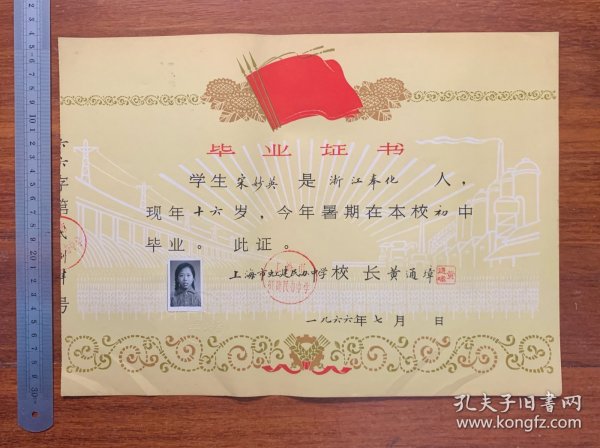 毕业证书
学生宋妙英是浙江奉化人，
现年十六岁，今年暑期在本校初中
毕业。此证。
上海市虹建民办中学校长黄通璋
一九六六年七月 日
孔夫子旧书网
www.kongfz.com